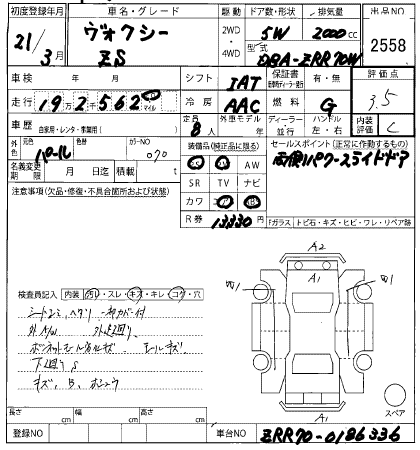 初度登録年月 車名・グレード 駆動 ドア数・形状 排気量 出品NO
21/3月 ヴォクシー ZS 2WD・4WD 5W 2000cc 2558
型式 DBA-ZRR70W
車検 年 月 シフト IAT 保証書 有・無 評価点 3.5
走行 192562 マイル 冷房 AAC 燃料 G
車歴 自家用・レンタ・事業用( ) 定員 8人 外車モデル 年 ディーラー・並行 ハンドル 左・右 内装評価 C
外色 元色 パール 色替 カラーNO 070 装備品(純正品に限る) セールスポイント(正常に作動するもの)
両側パワースライドドア
AW
名義変更期限 月 日迄 積載 t SR TV ナビ
注意事項(欠品・修復・不具合箇所および状態) カワ
R券 13330円 Fガラス トビ石・キズ・ヒビ・ワレ・リペア跡
A2
A1
検査員記入 内装 汚れ・スレ・キズ・キレ・コゲ・穴
下廻りS
キズ、B、
A1
スペア
長さ cm 幅 cm 高さ cm
登録NO 車台NO ZRR70-0186336